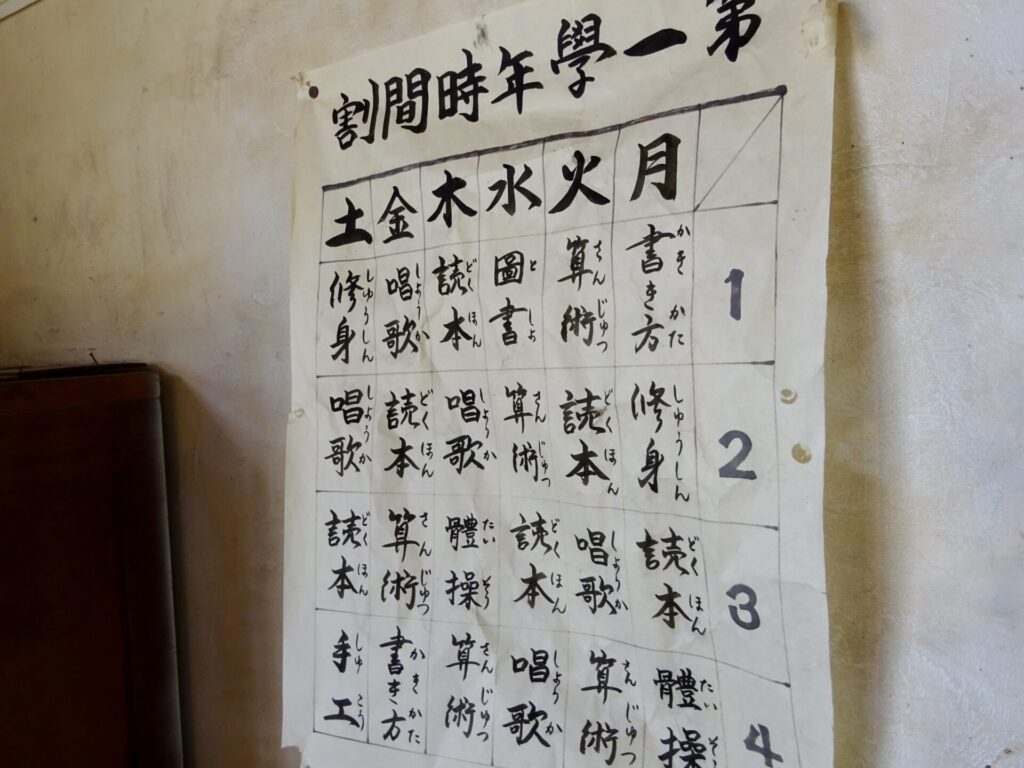 第一學年時間割
月 火 水 木 金 土
1
かきかた さんじゅつ としよ どくほん しようか しゅうしん
書き方 算術 圖書 読本 唱歌 修身
2
しゅうしん どくほん さんじゅつ しようか どくほん しようか
修身 読本 算術 唱歌 読本 唱歌
3
どくほん しようか どくほん たいそう さんじゅつ どくほん
読本 唱歌 読本 體操 算術 読本
4
たいそう さんじゅつ しようか さんじゅつ かきかた しゅこう
體操 算術 唱歌 算術 書き方 手工